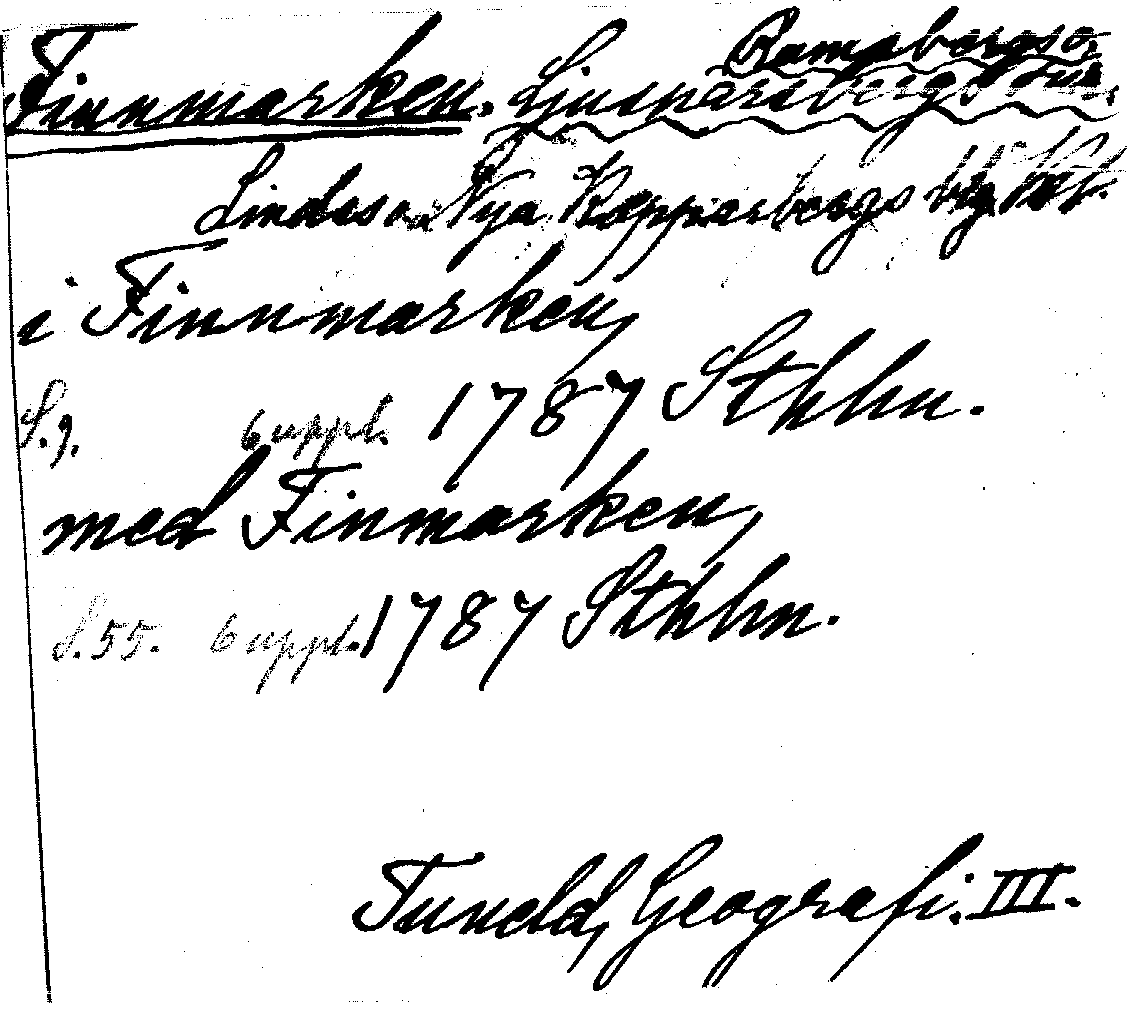 Ramsbergs o.
Finnmarken. Ljusnarsbergs snr.
Lindes o. Nya Kopparbergs btg. Vstm.
i Finnmarken,
S. 9. 6 uppl. 1787 Sthlm.
med Finmarken,
S. 55. 6 uppl. 1787 Sthlm.
Tuneld, Geografi. III.